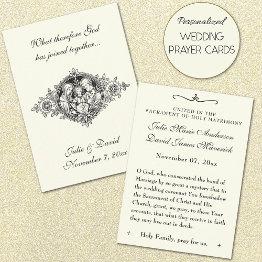 Personalized
WEDDING
PRAYER CARDS
What therefore God
has joined together...
Julie & David
November 7, 20xx
UNITED IN THE
SACRAMENT OF HOLY MATRIMONY
Julie Marie Anderson
David James
November 07, 20xx
O God, who consecrated the bond of
Marriage by so great a mystery that in
the wedding covenant You foreshadow
the Sacrament of Christ and His
Church, grant, we pray, to these Your
servants, that what they receive in faith
they may live out in deeds.
Holy Family, pray for us.